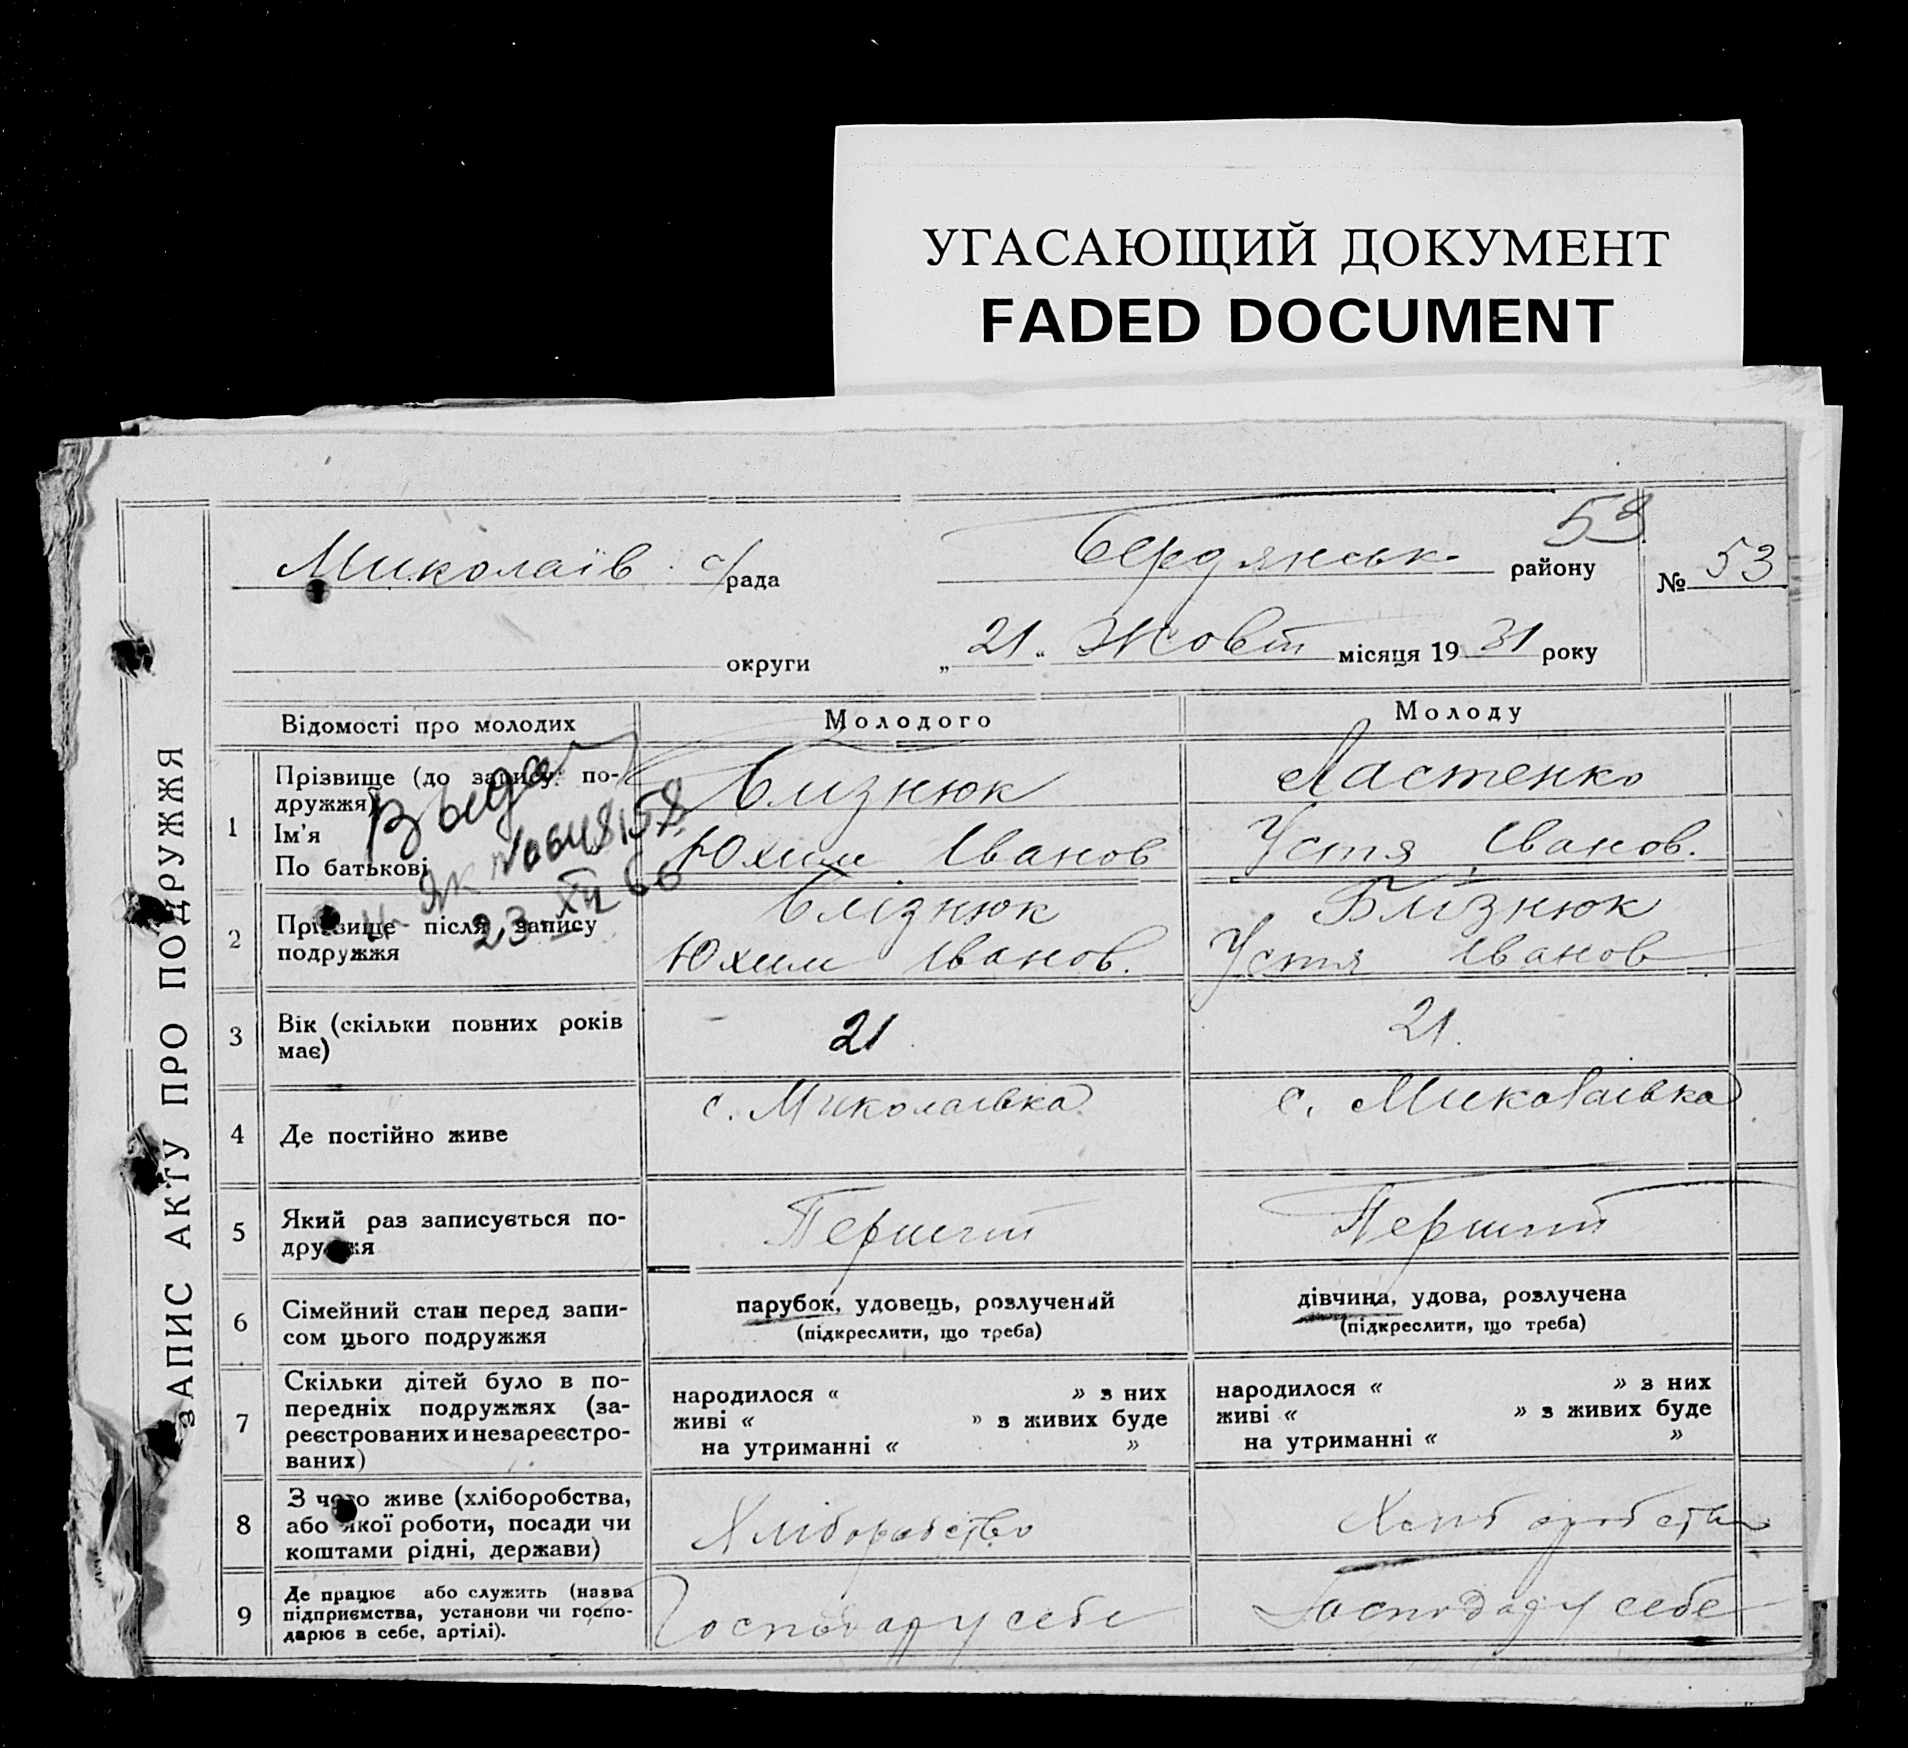 УГАСАЮЩИЙ ДОКУМЕНТ
FADED DOCUMENT
ЗАПИС АКТУ ПРО ПОДРУЖЖЯ
53
Миколаїв с/рада Бердянськ району № 53
округи „21“ Жовт місяця 1931 року
Відомості про молодих Молодого Молоду
1 Прізвище (до запису по-
дружжя)
Ім'я
По батькові
Близнюк
Юхим Іванов
Ластенко
Устя Іванов.
Выдан
ЯК №
23 XII 66
2 Прізвище після запису
подружжя
Близнюк
Юхим Іванов.
Близнюк
Устя Іванов
3 Вік (скільки повних років
має)
21
21.
4 Де постійно живе
с. Миколаівка
с. Миколаівка
5 Який раз записується по-
дружжя
Перший
Перший
6 Сімейний стан перед запи-
сом цього подружжя
парубок, удовець, розлучений
(підкреслити, що треба)
дівчина, удова, розлучена
(підкреслити, що треба)
7 Скільки дітей було в по-
передніх подружжях (за-
реєстрованих и незареєстро-
ваних)
народилося « » з них
живі « » з живих буде
на утриманні « »
народилося « » з них
живі « » з живих буде
на утриманні « »
8 З чого живе (хліборобства,
або якої роботи, посади чи
коштами рідні, держави)
Хліборобство
9 Де працює або служить (назва
підприємства, установи чи госпо-
дарює в себе, артілі).
Господар у себе
у себе